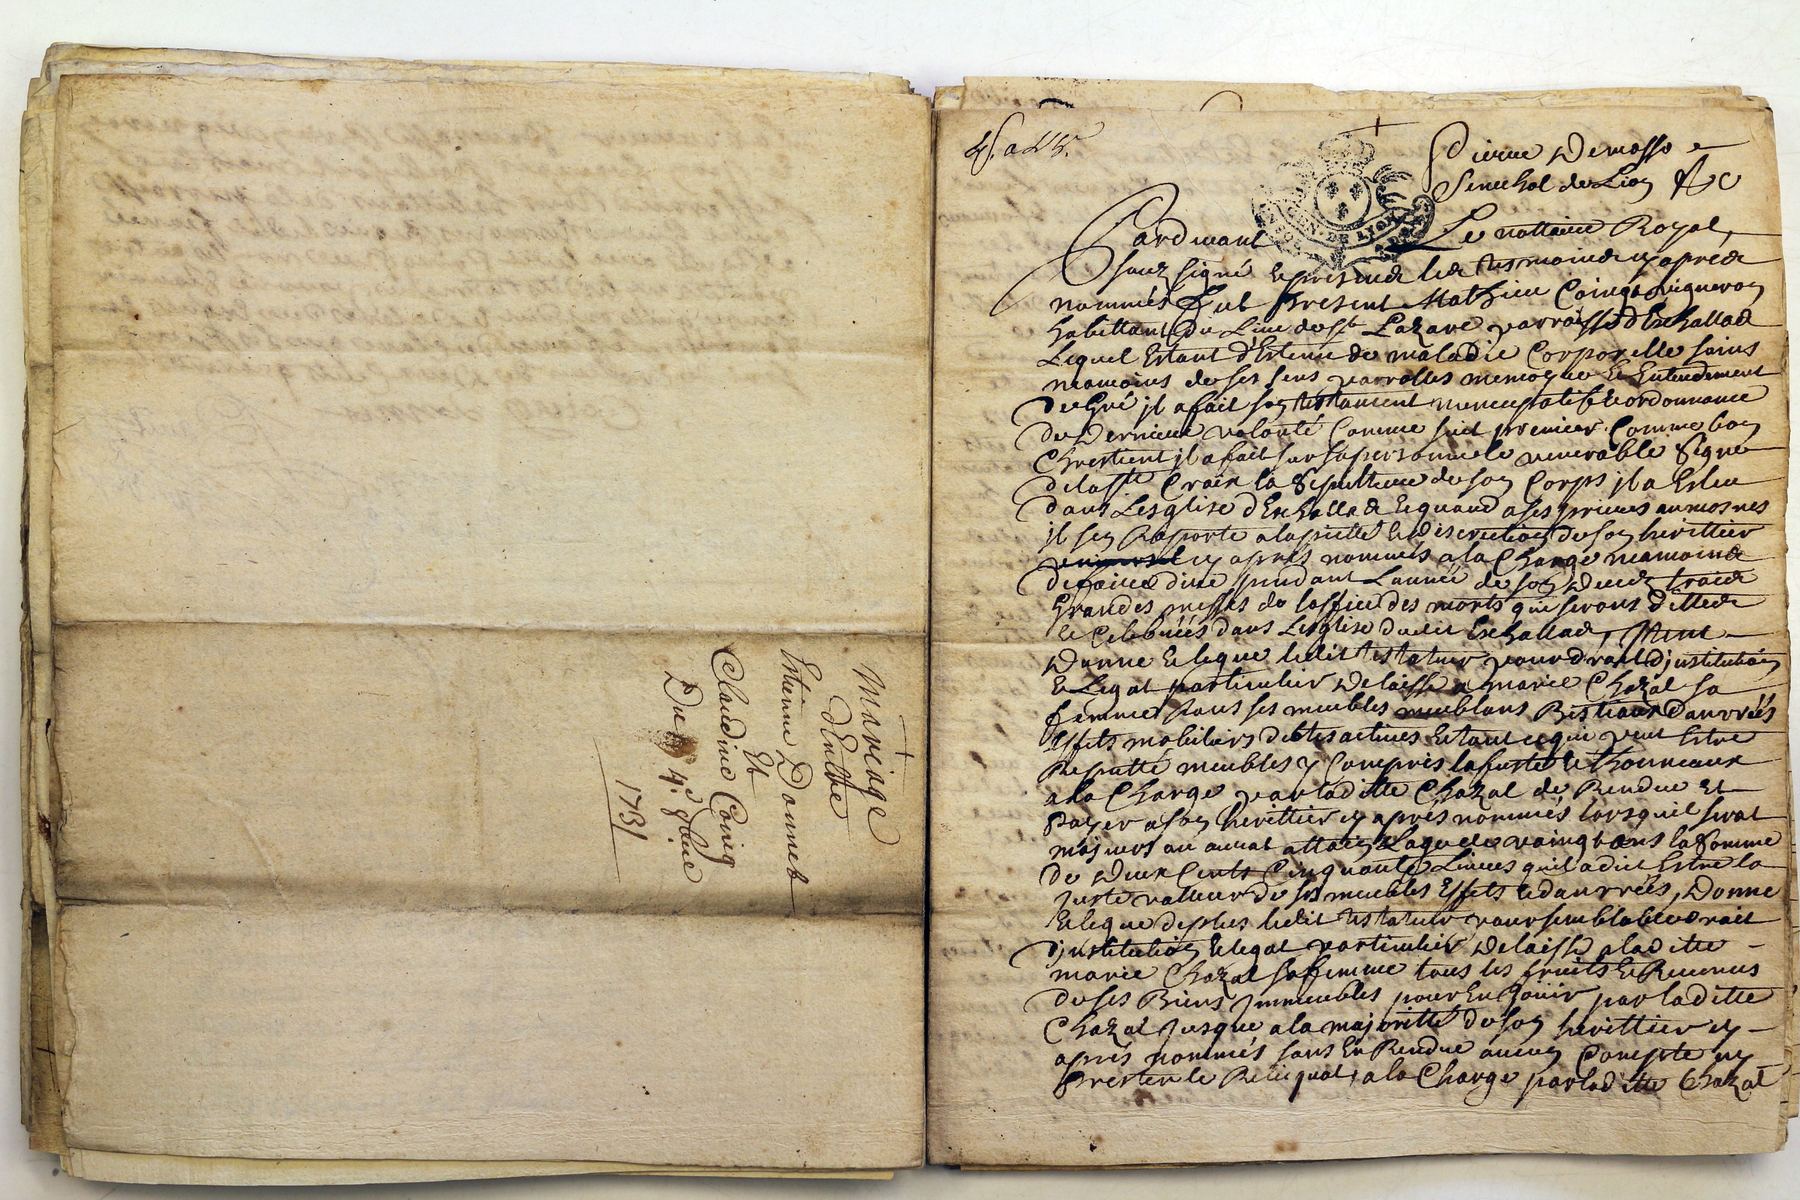 Mariage
d'Entre
Etienne Donnet
Et
Claudine Coing
Du 4e
1731
Pierre Demasso
Senechal de Lion &c
GEN. DE LYON
Pardevant Le nottaire Royal
souz signé et presendz les tesmoindz y aprèdz
nommés fut present Mathieu Coing vigneron
habittant du Lieu de St Lazare parroisse d'Exhalladz
Lequel Estant d'Estenu de maladie Corporelle sains
neamoins de ses sens parrolles memoyre Et Entendement
de Gré il a fait son testament nuncupatif et ordonnance
de Derniere volonté Comme suit premier Comme bon
Chrestient il a fait sur sa personne le venerable Signe
de la Ste Croix la Sepulture de son Corps il a Esleu
dans L'esglise d'Exhalladz Et quand a ses prieres aumosnes
il s'en Raporte a la pietté Et discretion de son herittier
cy après nommés a la Charge neamoindz
de faire dire pendant L'année de son Decedz troidz
Grandes messes de l'office des morts qui serons dittedz
Et Celebrées dans L'esglise dudit Exhalladz, Item
Donne Et legue ledit testateur pour droit d'institution
Et Legat particulier Delaisse a marie Chazal sa
femme tous ses meubles meublans Bestiaux danrrées
Effets mobiliers debtes actives Et tout ce qui peut Estre
Reputté meubles y Compris la fustes Et thonneaux
a la Charge par laditte Chazal de Rendre Et
Payer a son herittier cy après nommés lorsquil serat
majeurs ou aurat attain L'age de vaingt ans la Somme
de Deux Cents Cinquante Livres quil a dit Estre la
juste valleur de ses meubles Effets Et danrrées, Donne
Et legue de plus ledit testateur pour semblable droit
d'institution Et legat particulier Delaisse a laditte
marie Chazal sa femme tous les fruits Et Revenus
de ses Biens Immeubles pour En Joüir par laditte
Chazal Jusque a la majoritté de son herittier cy
après nommés sans En Rendre aucun Compte ny
Prester le Relicquat, a la Charge par laditte Chazal